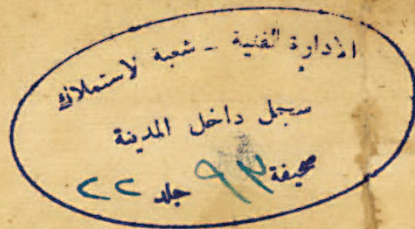 الادارة الفنية - شعبة الاستملاك
سجل داخل المدينة
صحيفة ٩٣ جلد ٢٢